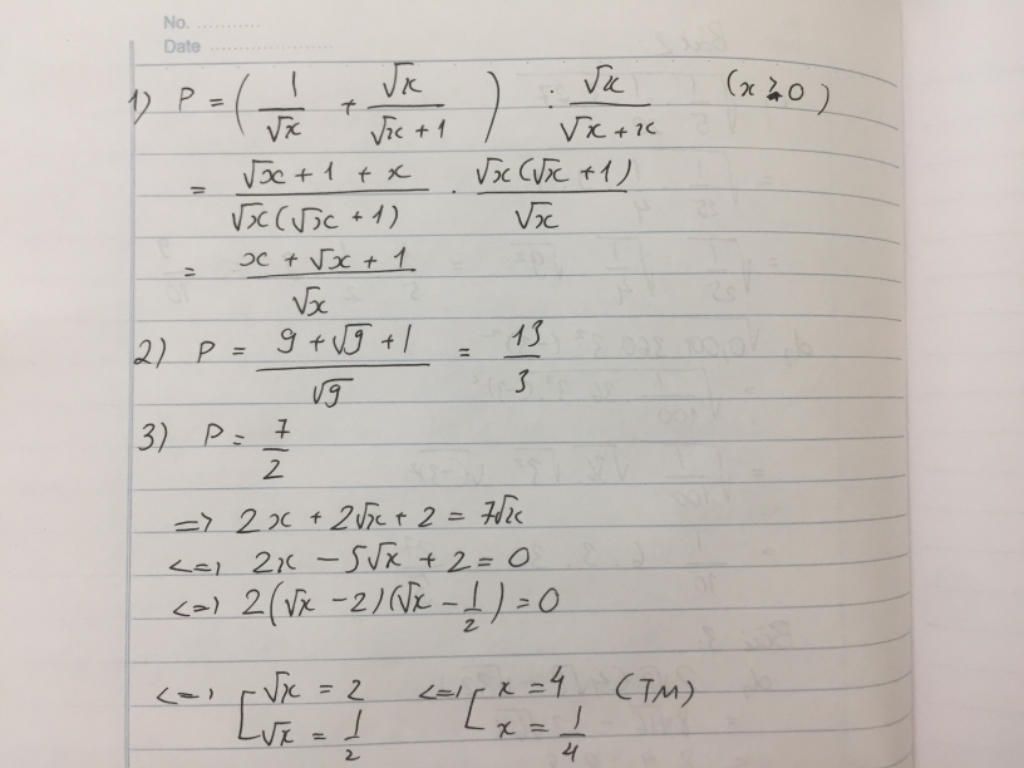 No. ............
Date .....................
1) P = ( 1/√x + √x/(√x + 1) ) : √x/(√x + x) (x > 0)
= (√x + 1 + x)/(√x(√x + 1)) . √x(√x + 1)/√x
= (x + √x + 1)/√x
2) P = (9 + √9 + 1)/√9 = 13/3
3) P = 7/2
=> 2x + 2√x + 2 = 7√x
<=> 2x - 5√x + 2 = 0
<=> 2(√x - 2)(√x - 1/2) = 0
<=> [ √x = 2 <=> [ x = 4 (TM)
√x = 1/2 x = 1/4